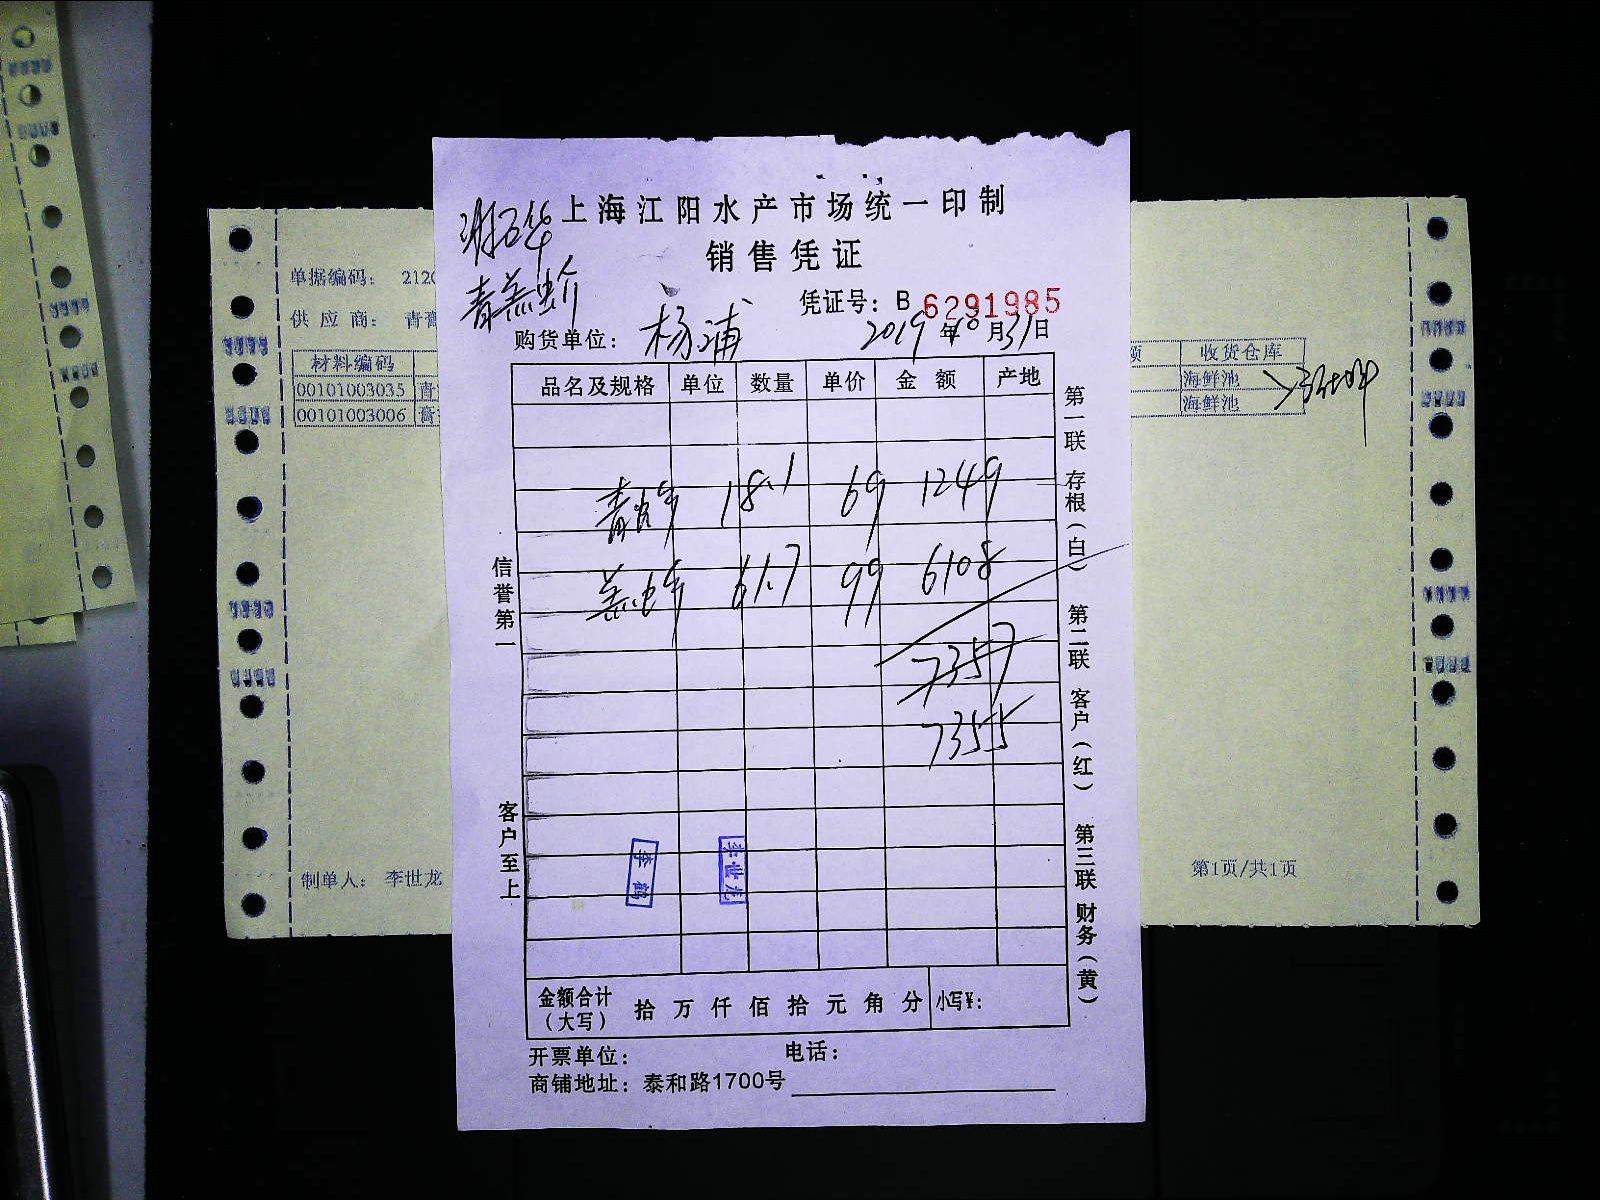 上海江阳水产市场统一印制
销售凭证
凭证号：B 6291985
购货单位：杨浦 2019年10月31日
品名及规格 单位 数量 单价 金额 产地
青 18.1 69 1249
61.7 99 6108
7357
7355
信誉第一
客户至上
第一联 存根（白） 第二联 客户（红） 第三联 财务（黄）
李鹤
李世龙
金额合计（大写） 拾 万 仟 佰 拾 元 角 分 小写¥：
开票单位： 电话：
商铺地址：泰和路1700号
单据编码： 212
供应商： 青
材料编码
00101003035 青
00101003006 膏
收货仓库
海鲜池
海鲜池
制单人： 李世龙
第1页/共1页